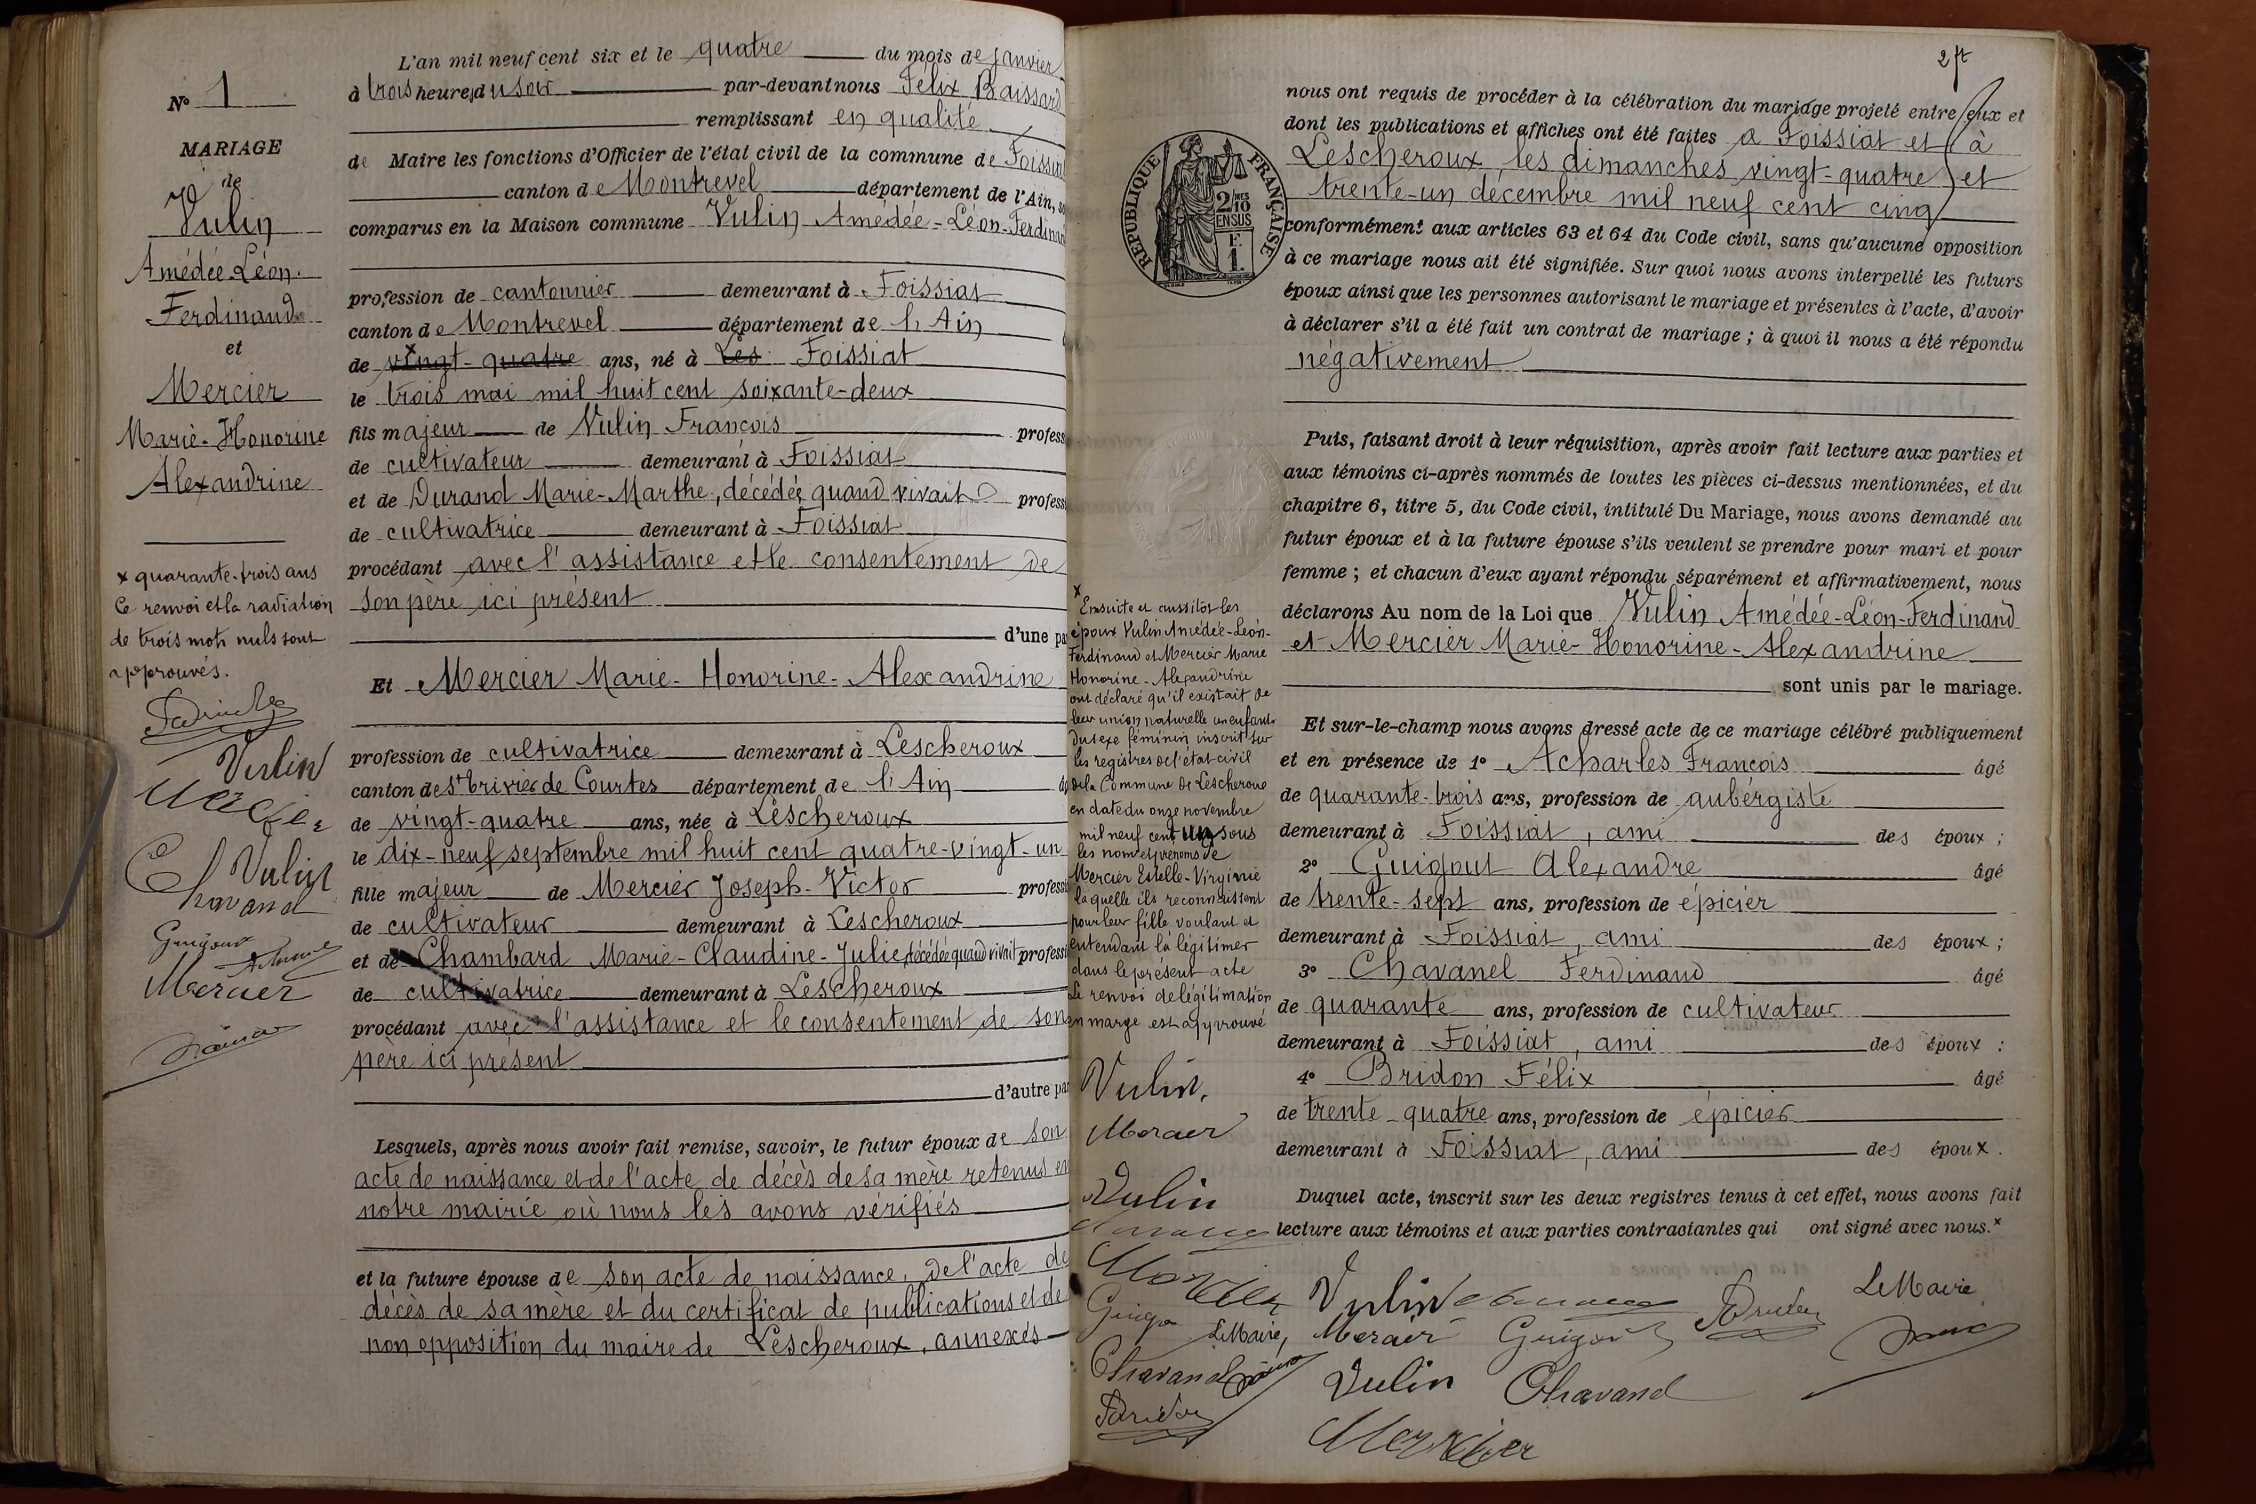 L'an mil neuf cent six et le quatre du mois de janvier
à trois heures du soir par-devant nous Félix
remplissant en qualité
de Maire les fonctions d'Officier de l'état civil de la commune de Foissiat
canton de Montrevel département de l'Ain,
comparus en la Maison commune Vulin Amédée-Léon-Ferdinand
profession de cantonnier demeurant à Foissiat
canton de Montrevel département de l'Ain
de vingt-quatre ans, né à Les Foissiat
le trois mai mil huit cent soixante-deux
fils majeur de Vulin François profess
de cultivateur demeurant à Foissiat
et de Durand Marie-Marthe, décédée quand vivait profess
de cultivatrice demeurant à Foissiat
procédant avec l'assistance et le consentement de
son père ici présent
d'une pa
Et Mercier Marie-Honorine-Alexandrine
profession de cultivatrice demeurant à Lescheroux
canton de St Trivier de Courtes département de l'Ain
de vingt-quatre ans, née à Lescheroux
le dix-neuf septembre mil huit cent quatre-vingt-un
fille majeur de Mercier Joseph-Victor professi
de cultivateur demeurant à Lescheroux
et de Chambard Marie-Claudine-Julie, décédée quand vivait professi
de cultivatrice demeurant à Lescheroux
procédant avec l'assistance et le consentement de son
père ici présent
d'autre pa
Lesquels, après nous avoir fait remise, savoir, le futur époux de son
acte de naissance et de l'acte de décès de sa mère retenus en
notre mairie où nous les avons vérifiés
et la future épouse de son acte de naissance, de l'acte de
décès de sa mère et du certificat de publications et de
non opposition du maire de Lescheroux, annexés
N° 1
MARIAGE
de
Vulin
Amédée Léon
Ferdinand
et
Mercier
Marie-Honorine
Alexandrine
x quarante-trois ans
Ce renvoi et la radiation
de trois mots nuls sont
approuvés.
Vulin
Vulin
Chavand
Mercier
2
nous ont requis de procéder à la célébration du mariage projeté entre eux et
dont les publications et affiches ont été faites à Foissiat et à
Lescheroux les dimanches vingt-quatre et
trente-un décembre mil neuf cent cinq
conformément aux articles 63 et 64 du Code civil, sans qu'aucune opposition
à ce mariage nous ait été signifiée. Sur quoi nous avons interpellé les futurs
époux ainsi que les personnes autorisant le mariage et présentes à l'acte, d'avoir
à déclarer s'il a été fait un contrat de mariage ; à quoi il nous a été répondu
négativement
RÉPUBLIQUE FRANÇAISE
2/10
EN SUS
F.
1.
Puis, faisant droit à leur réquisition, après avoir fait lecture aux parties et
aux témoins ci-après nommés de toutes les pièces ci-dessus mentionnées, et du
chapitre 6, titre 5, du Code civil, intitulé Du Mariage, nous avons demandé au
futur époux et à la future épouse s'ils veulent se prendre pour mari et pour
femme ; et chacun d'eux ayant répondu séparément et affirmativement, nous
déclarons Au nom de la Loi que Vulin Amédée-Léon-Ferdinand
et Mercier Marie-Honorine-Alexandrine
sont unis par le mariage.
Et sur-le-champ nous avons dressé acte de ce mariage célébré publiquement
et en présence de 1° Acharles François âgé
de quarante-trois ans, profession de aubergiste
demeurant à Foissiat, ami des époux ;
2° Guigout Alexandre âgé
de trente-sept ans, profession de épicier
demeurant à Foissiat, ami des époux ;
3° Chavanel Ferdinand âgé
de quarante ans, profession de cultivateur
demeurant à Foissiat, ami des époux ;
4° Bridon Félix âgé
de trente-quatre ans, profession de épicier
demeurant à Foissiat, ami des époux.
Duquel acte, inscrit sur les deux registres tenus à cet effet, nous avons fait
lecture aux témoins et aux parties contractantes qui ont signé avec nous.x
x
Ensuite et aussitôt les
époux Vulin Amédée-Léon-
Ferdinand et Mercier Marie
Honorine-Alexandrine
ont déclaré qu'il existait de
leur union naturelle un enfant
du sexe féminin inscrit sur
les registres de l'état civil
de la Commune de Lescheroux
en date du onze novembre
mil neuf cent un sous
les nom et prénoms de
Mercier Estelle-Virginie
laquelle ils reconnaissent
pour leur fille voulant et
entendant la légitimer
dans le présent acte
Le renvoi de légitimation
en marge est approuvé
Vulin.
Mercier
Vulin
Le Maire,
Chavanel
Vulin
Le Maire
Mercier
Vulin
Chavand
Mercier